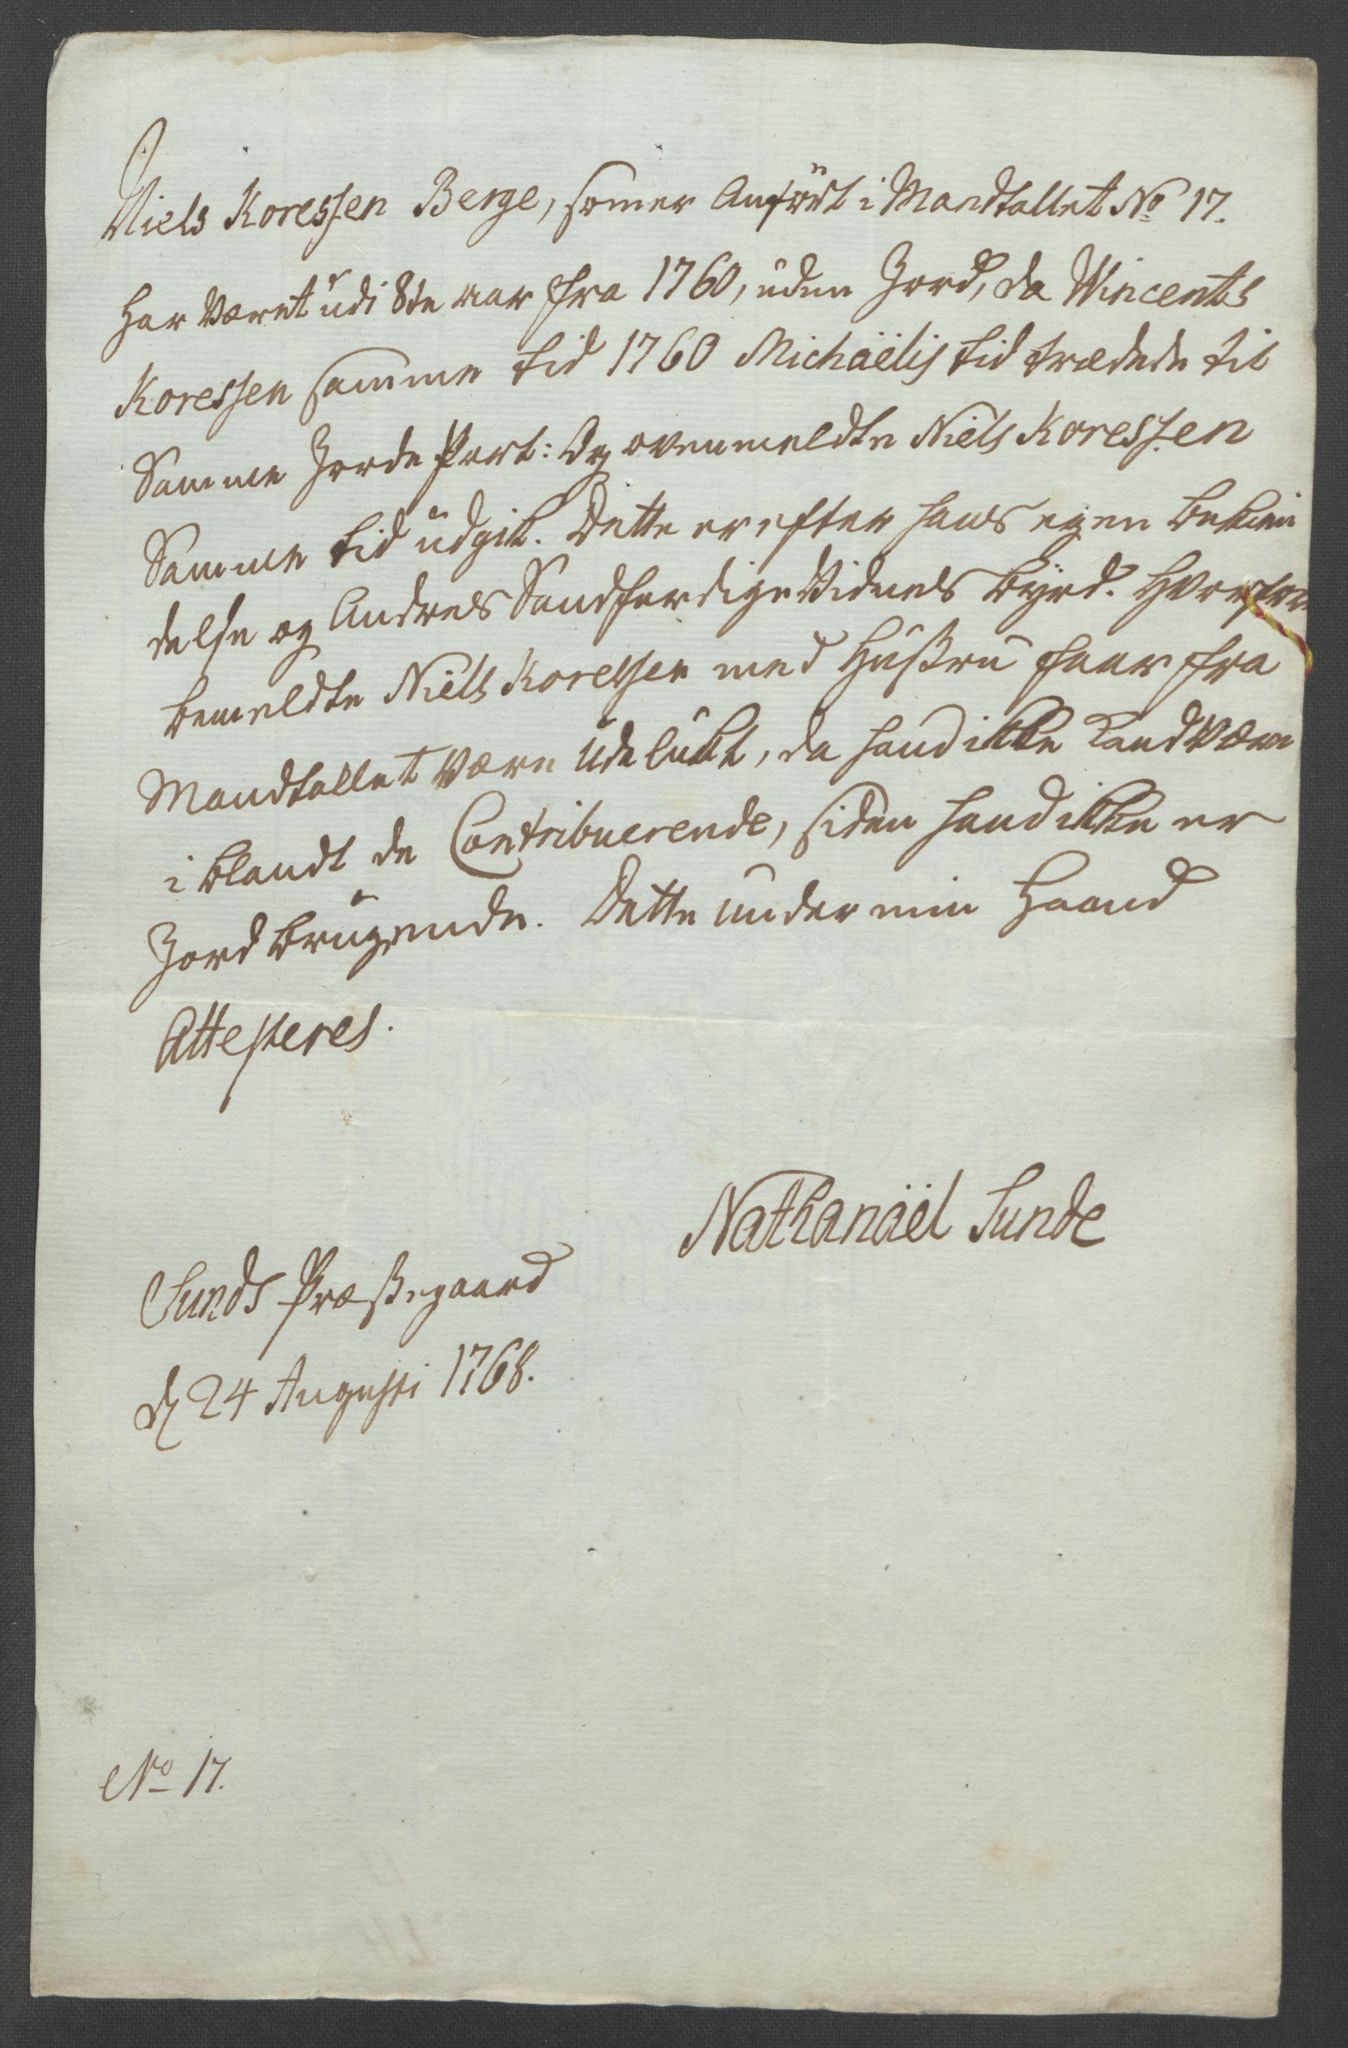 Niels Koressen Berge, som er Anført i Mandtallet No 17.
har været udi 8te aar fra 1760, uden Jord, da Wincents
Koressen samme tid 1760 Michaëlis tid trædede til
Samme Jorde Part: Og ovenmeldte Niels Koressen
Samme tid udgik. Dette er efter hans egen bekien
delse og Andres Sandferdige Vidnes byrd. Hvorfore
bemeldte Niels Koressen med Hußtru faar fra
Mandtallet være Udelukt, da hand ikke kand være
i blandt de Contribuerende, siden hand ikke er
Jord brugende. Dette under min Haand
Attesteres.
Nathanaël Sunde
Sunds Præßtegaard
d 24 Augusti 1768.
No 17.